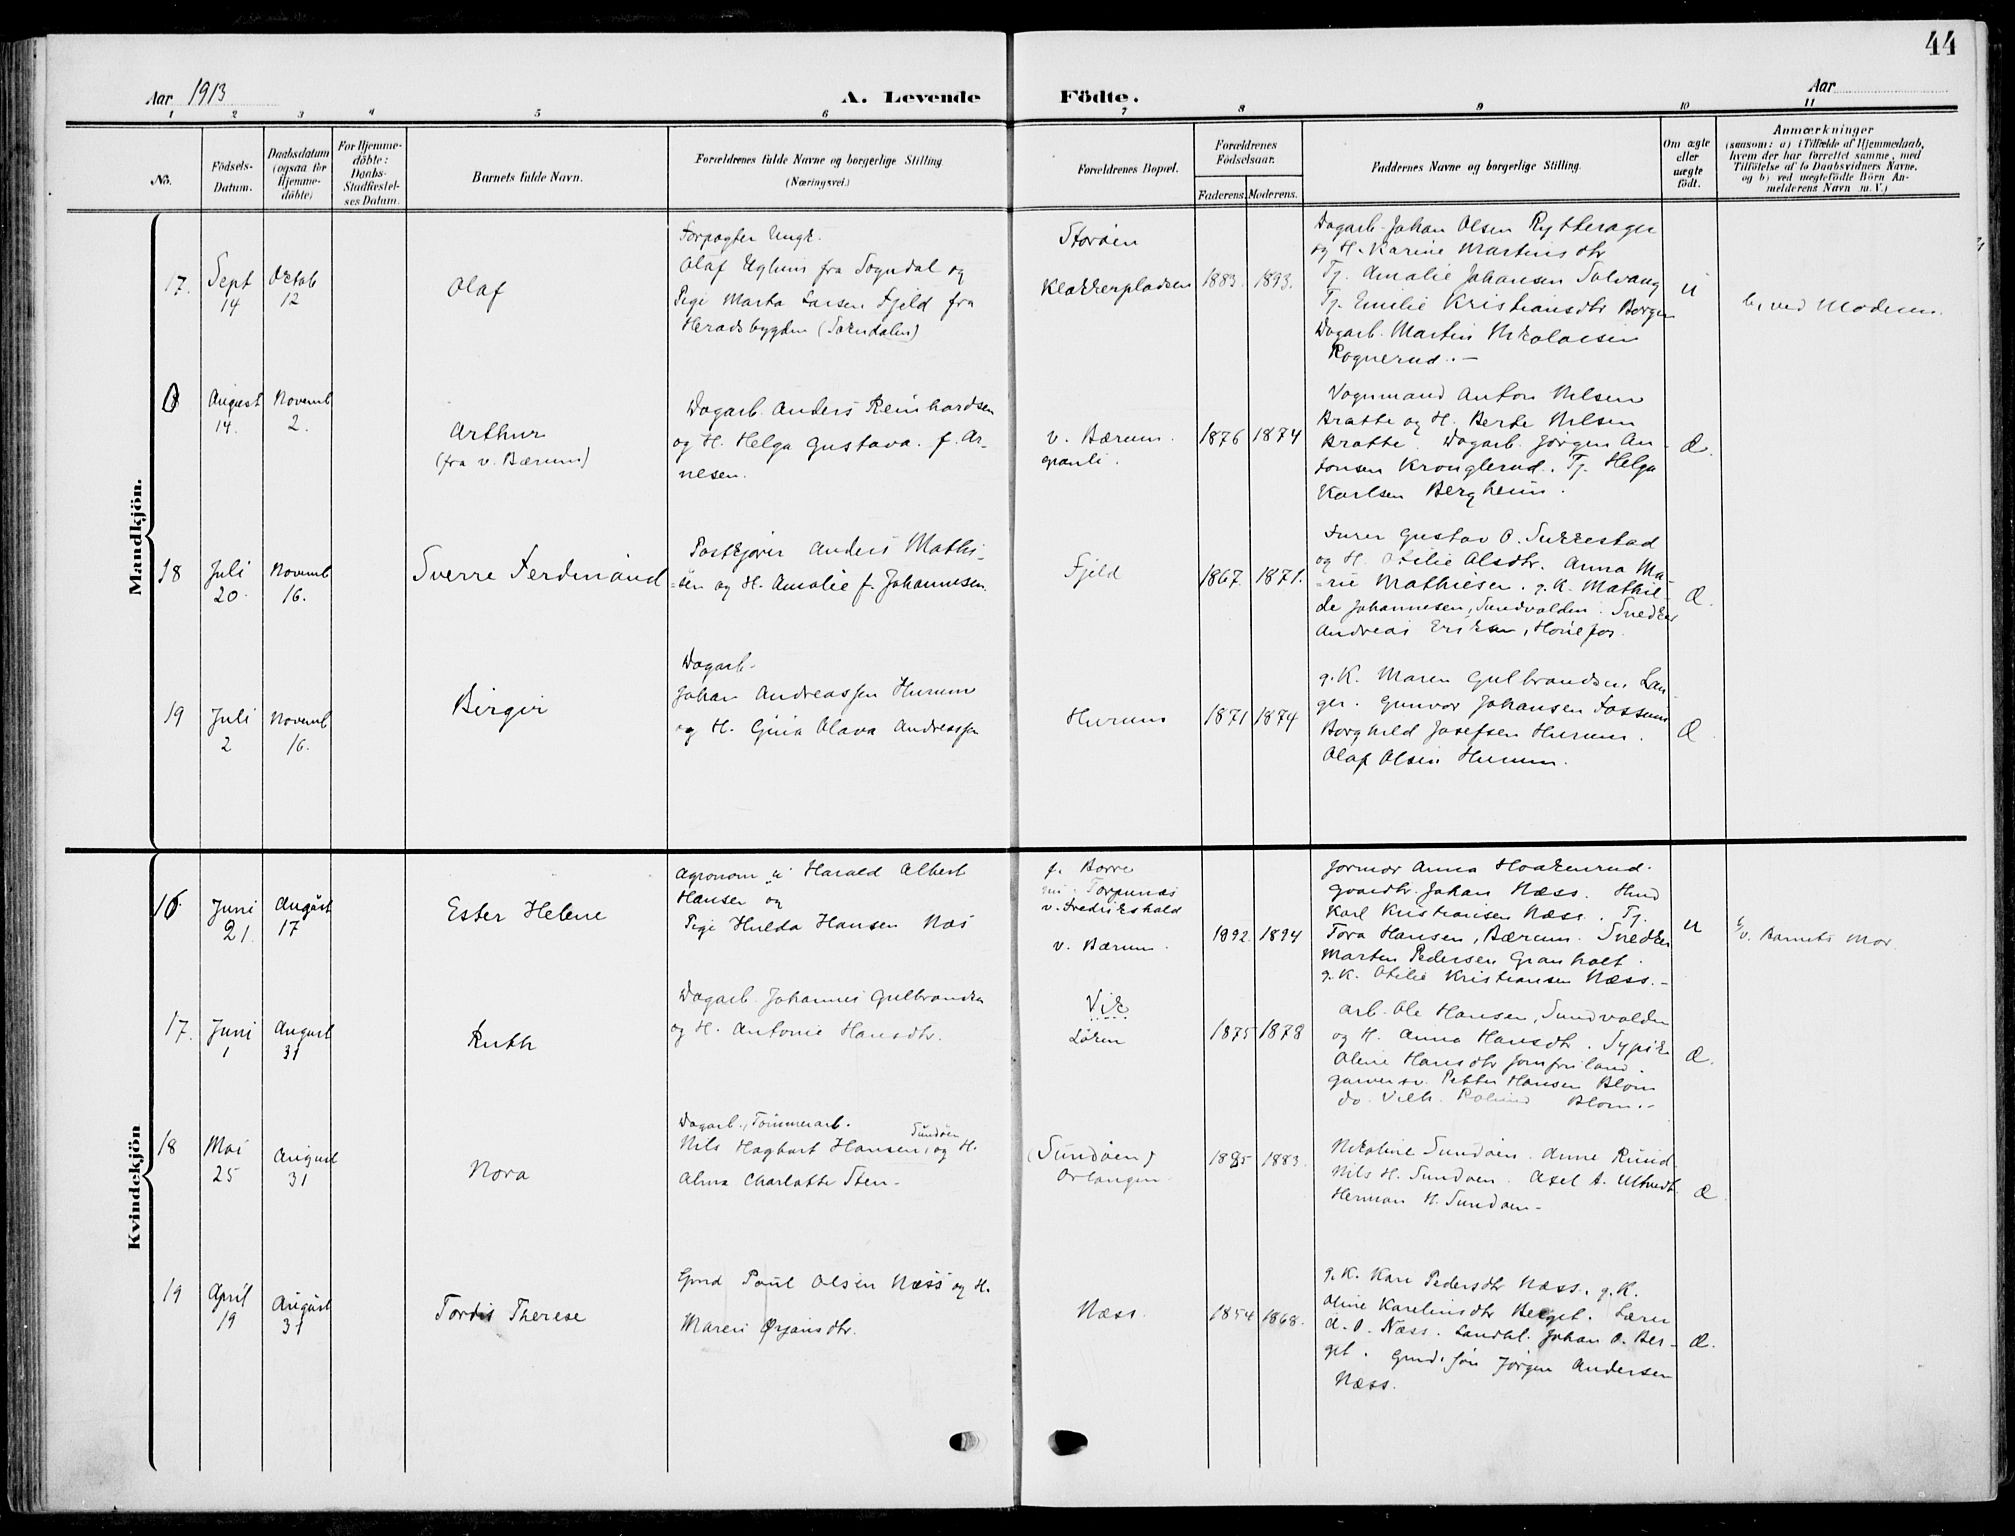 44
Aar 1913
A. Levende Födte.
Aar
1 2 3 4 5 6 7 8 9 10 11
No.
Födsels-
Datum.
Daabsdatum
(ogsaa for
Hjemme-
döbte)
For Hjemme-
döbte:
Daabs-
Stadfæstel-
ses Datum.
Barnets fulde Navn.
Forældrenes fulde Navne og borgerlige Stilling
(Næringsvei.)
Forældrenes Bopæl.
Forældrenes
Födselsaar.
Faderens. Moderens.
Faddernes Navne og borgerlige Stilling.
Om ægte
eller
uægte
födt.
Anmærkninger
(saasom: a) i Tilfælde af Hjemmedaab,
hvem der har forrettet samme, med
Tilföielse af to Daabsvidners Navne,
og b) ved uægtefödte Börn An-
melderens Navn m. V.)
Mandkjön.
17. Sept
14
Oktob
12
Olaf
Forpagter Ungk.
Olaf Uglum fra Sogndal og
Pige Marta Larsen Fjeld fra
Heradsbygden (Sokndalen)
Storøen
Klokkerpladsen
1883. 1893.
Dagarb. Johan Olsen Rytterager
og H. Karine Martinsdtr
Tj. Amalie Johansen Solvang
Tj. Emilie Kristiansdtr Borgen
Dagarb. Martin Nikolaisen
Rognerud. —
u
b, ved Moderen.
August
14.
Novemb
2.
Arthur
(fra v. Bærum)
Dagarb. Anders Reinhardsen
og H. Helga Gustava. f. Ar-
nesen.
v. Bærum.
Granli.
1876 1874
Vognmand Anton Nilsen
Bratte og H. Berte Nilsen
Bratte. Dagarb. Jørgen An-
tonsen Kronglerud. Tj. Helga
Karlsen Bergheim.
Æ.
18 Juli
20.
Novemb
16.
Sverre Ferdinand
Postkjører Anders Mathi-
sen og H. Amalie f. Johannesen.
Fjeld
1867. 1871.
Furer Gustav O. Sukkestad
og H. Otilie Olsdtr. Anna Ma-
rie Mathiesen. g. K. Mathil-
de Johannesen, Sundvolden. Snedker
Andreas Eriksen, Hønefos.
Æ.
19 Juli
2
Novemb
16.
Birger
Dagarb.
Johan Andreassen Hurum
og H. Gina Olava Andreassen
Hurum
1871 1874
g. K. Maren Gulbrandsen Lan-
ger. Gunvor Johansen Fossum
Borghild Josefsen Hurum.
Olaf Olsen Hurum.
Æ.
Kvindekjön
16. Juni
21.
August
17
Ester Helene
Agronom u Harald Albert
Hansen og
Pige Hulda Hansen Næs
f. Borre
Torpunæs
v. Fredrikshald
v. Bærum.
1892. 1894
Formor Anna Haakenrud.
Gaardbr. Johan Næss. Hmd
Karl Kristiansen Næss. Tj.
Tora Hansen, Bærum. Snedker
Marten Pedersen Granholt.
g. K. Otilie Kristiansen Næss. -
u
b/v. Barnets Mor.
17. Juni
1
August
31
Ruth
Dagarb. Johannes Gulbrandsen
og H. Antonie Hansdtr.
Vik
Løren
1875 1878
Arb. Ole Hansen, Sundvolden
og H. Anna Hansdtr. Sypike
Oline Hansdtr Jomfruland.
Garversv. Petter Hansen Blom
do. Vilh. Blom. -
Æ.
18 Mai
25
August
31
Nora
Dagarb., Tømmerarb.
Nils Hagbart Hansen Sundøen, og H.
Alma Charlotte Sten-
(Sundøen)
Ørtangen.
1885 1883.
Nikoline Sundøen. Anne Rund-
Nils H. Sundøen. Axel A. Ultvedt.
Herman N. Sundøen-
Æ.
19 April
19
August
31
Tordis Therese
Gmd Poul Olsen Næss og H.
Maren Ørjansdtr.
Næss.
1854 1868.
g. K. Kari Pedersdtr Næss. g. K.
Oline Karelinsdtr Berget. Lærer
A. O. Næss. Landhl. Johan O. Ber-
get. Gmds. søn Jørgen Andersen
Næss.
Æ.